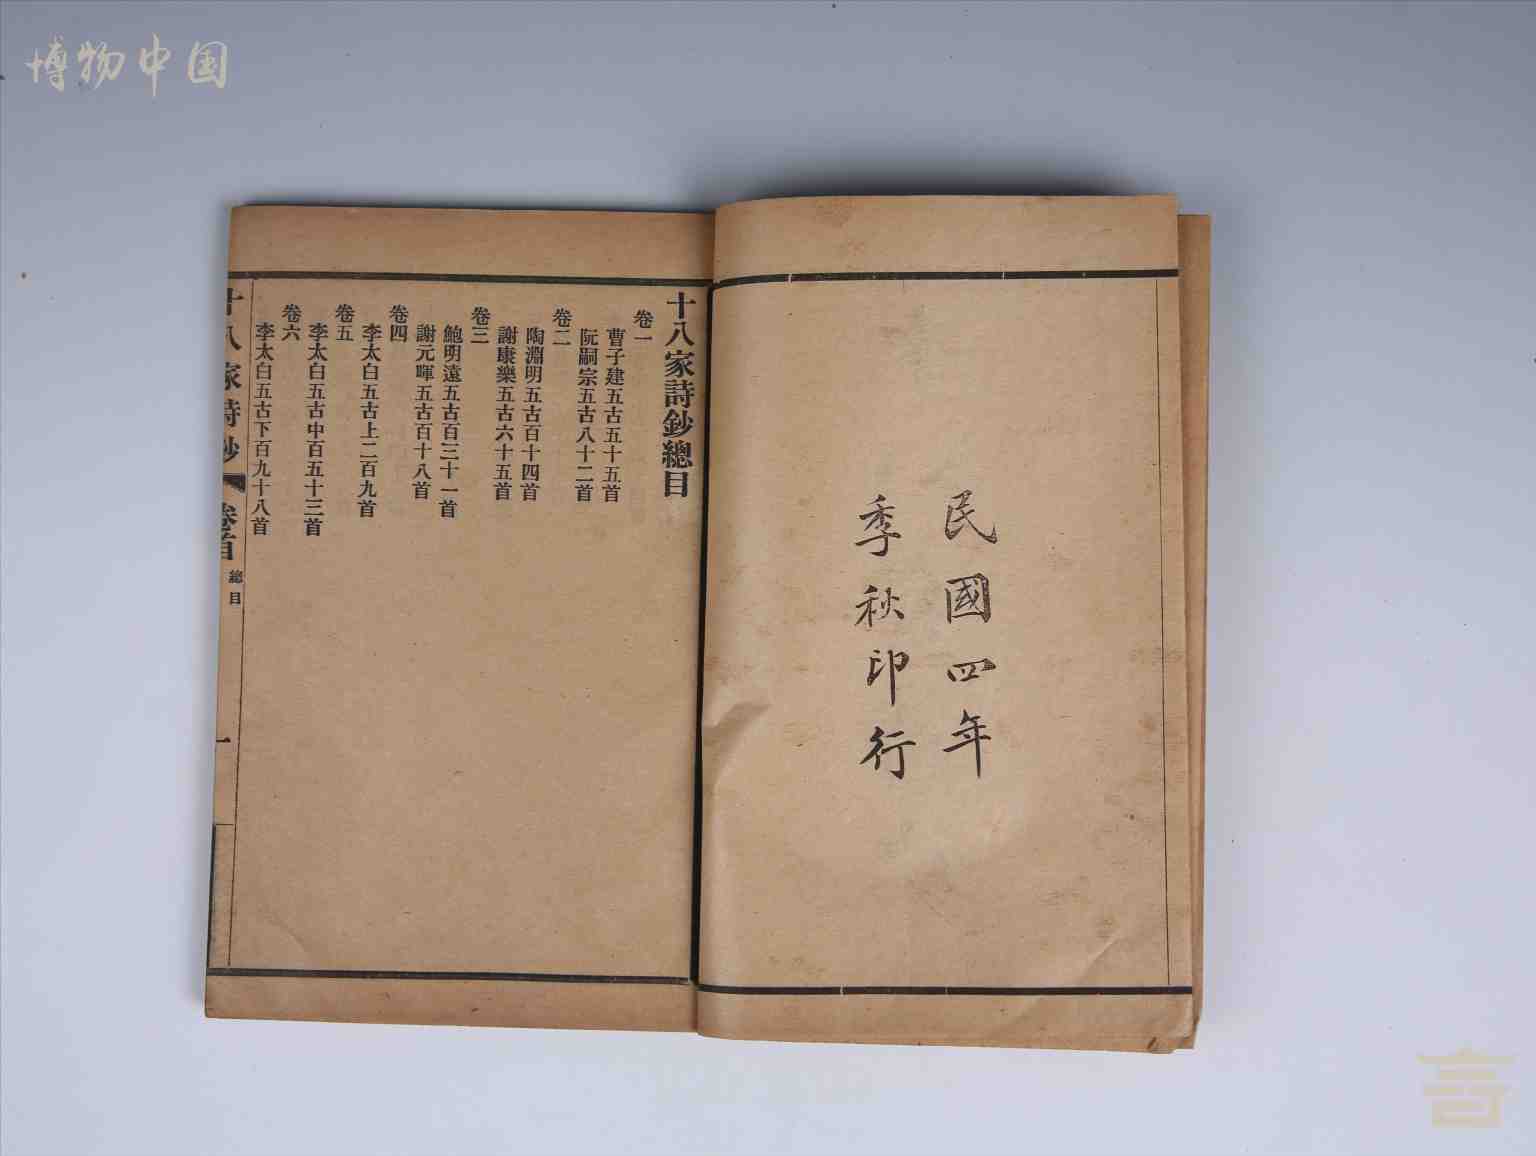 博物中国
民國四年
季秋印行
十八家詩鈔總目
卷一
曹子建五古五十五首
阮嗣宗五古八十二首
卷二
陶淵明五古百十四首
謝康樂五古六十五首
卷三
鮑明遠五古百三十一首
謝元暉五古百十八首
卷四
李太白五古上二百九首
卷五
李太白五古中百五十三首
卷六
李太白五古下百九十八首
十八家詩鈔 卷首 總目 一